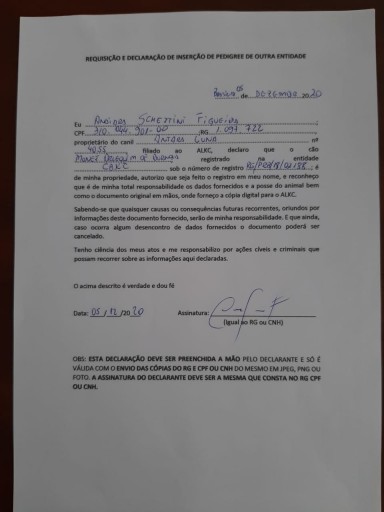 REQUISIÇÃO E DECLARAÇÃO DE INSERÇÃO DE PEDIGREE DE OUTRA ENTIDADE
05 de DEZEMBRO 2020
Eu SCHETTINI FIGUEIRA,
CPF 901-00 ;RG 1.097.722,
proprietário do canil nº
4055, filiado ao ALKC, declaro que o cão
registrado na entidade
CBKC sob o número de registro ; é
de minha propriedade, autorizo que seja feito o registro em meu nome, e reconheço
que é de minha total responsabilidade os dados fornecidos e a posse do animal bem
como o documento original em mãos, onde forneço a cópia digital para o ALKC.
Sabendo-se que quaisquer causas ou consequências futuras recorrentes, oriundos por
informações deste documento fornecido, serão de minha responsabilidade. E que ainda,
caso ocorra algum desencontro de dados fornecidos o documento poderá ser
cancelado.
Tenho ciência dos meus atos e me responsabilizo por ações cíveis e criminais que
possam recorrer sobre as informações aqui declaradas.
O acima descrito é verdade e dou fé
Data: 05/12/2020 Assinatura:
(Igual ao RG ou CNH)
OBS: ESTA DECLARAÇÃO DEVE SER PREENCHIDA A MÃO PELO DECLARANTE E SÓ É
VÁLIDA COM O ENVIO DAS CÓPIAS DO RG E CPF OU CNH DO MESMO EM JPEG, PNG OU
FOTO. A ASSINATURA DO DECLARANTE DEVE SER A MESMA QUE CONSTA NO RG CPF
OU CNH.